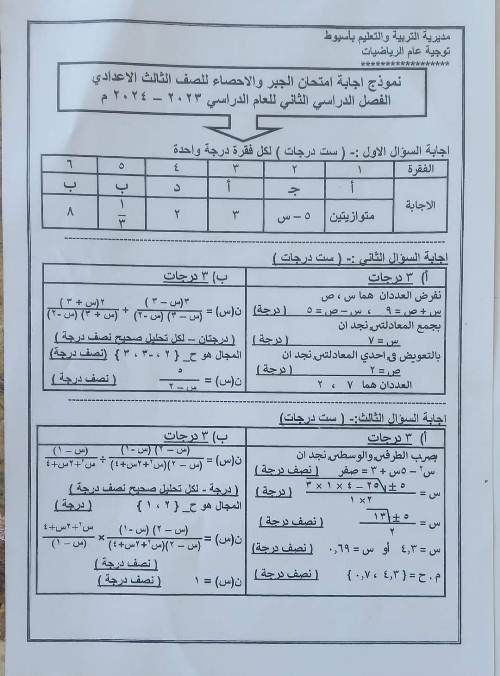 مديرية التربية والتعليم بأسيوط
توجية عام الرياضيات
******************
نموذج اجابة امتحان الجبر والاحصاء للصف الثالث الاعدادي
الفصل الدراسي الثاني للعام الدراسي ٢٠٢٣ – ٢٠٢٤ م
اجابة السؤال الاول :- ( ست درجات ) لكل فقرة درجة واحدة
الفقرة ١ ٢ ٣ ٤ ٥ ٦
الاجابة أ جـ أ د ب ب
متوازيتين ٥ – س ٣ ٢ ١/٣ ٨
إجابة السؤال الثاني :- ( ست درجات )
أ ) ٣ درجات
نفرض العددان هما س ، ص
س + ص = ٩ ، س – ص = ٥ ( درجة)
بجمع المعادلتين نجد ان
س = ٧ ( درجة )
بالتعويض فى احدي المعادلتين نجد ان
ص = ٢ ( درجة )
العددان هما ٧ ، ٢
ب ) ٣ درجات
ن(س) = ٣(س – ٣) / (س – ٣) (س – ٢) + ٢(س + ٣) / (س + ٣) (س – ٢)
( درجتان – لكل تحليل صحيح نصف درجة )
المجال هو ح_ { ٢ ، -٣ ، ٣ } (نصف درجة)
ن(س) = ٥ / س – ٢ ( نصف درجة )
إجابة السؤال الثالث:- ( ست درجات)
أ ) ٣ درجات
بضرب الطرفين والوسطين نجد ان
س٢ – ٥س + ٣ = صفر ( نصف درجة )
س = ٥ ± √٢٥ – ٤ × ١ × ٣ / ٢ × ١ ( درجة )
س = ٥ ± √١٣ / ٢ ( نصف درجة )
س = ٤,٣ أو س = ٠,٦٩ ( نصف درجة)
م . ح = { ٤,٣ ، ٠,٧ } ( نصف درجة )
ب ) ٣ درجات
ن(س) = (س – ٢) (س – ١) / (س – ٢)(س٢+٢س+٤) ÷ (س – ١) / س٢+٢س+٤
( درجة - لكل تحليل صحيح نصف درجة )
المجال هو ح_ { ٢ ، ١ } ( درجة )
ن(س) = (س – ٢) (س – ١) / (س – ٢)(س٢+٢س+٤) × س٢+٢س+٤ / (س – ١)
( نصف درجة )
ن(س) = ١ ( نصف درجة )